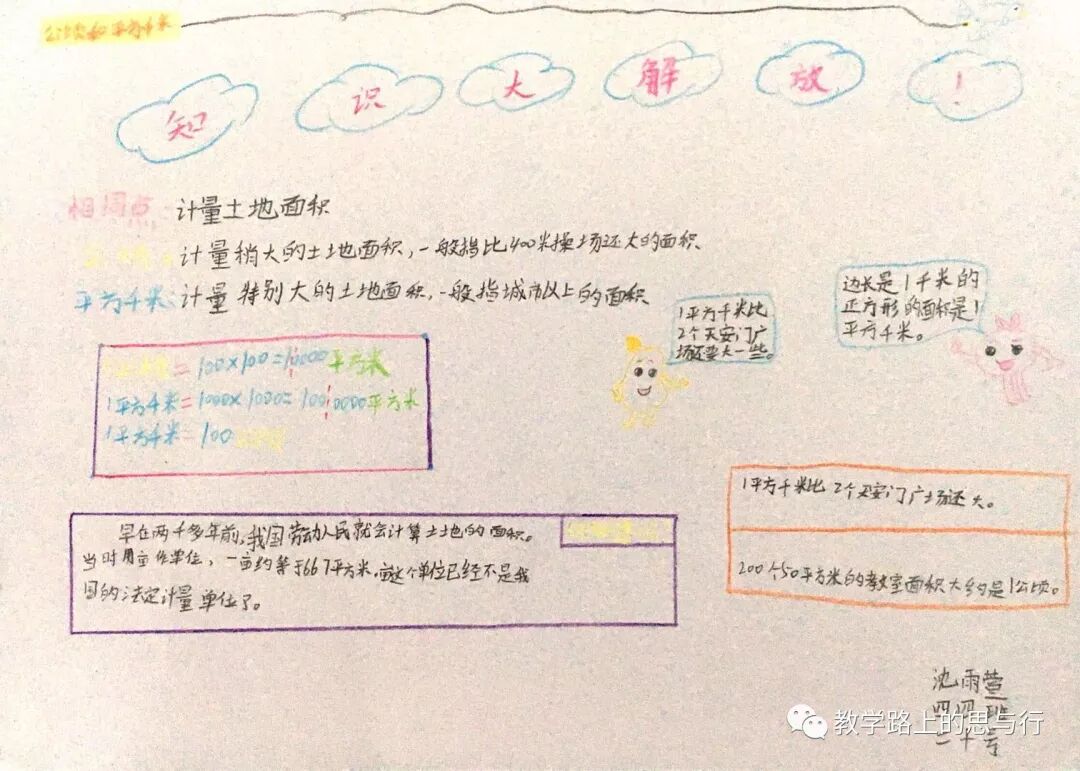 公顷和平方千米
知识大解放!
相同点:计量土地面积
公顷:计量稍大的土地面积,一般指比400米操场还大的面积
平方千米:计量特别大的土地面积,一般指城市以上的面积
1平方千米比
2个天安门广
场还要大一些。
边长是1千米的
正方形的面积是1
平方千米。
1公顷=100×100=10000平方米
1平方千米=1000×1000=1000000平方米
1平方千米=100公顷
1平方千米比2个天安门广场还大。
200个50平方米的教室面积大约是1公顷。
早在两千多年前,我国劳动人民就会计算土地的面积。
当时用亩作单位,一亩约等于667平方米。亩这个单位已经不是我
国的法定计量单位了。
沈雨萱
四四班
二十号
教学路上的思与行